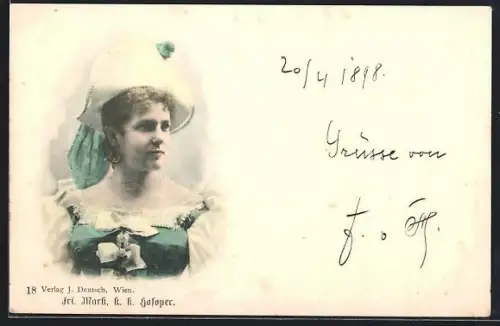 20/4 1898.
Grüsse von
18 Verlag J. Deutsch, Wien.
Frl. Mark, k. k. Hofoper.